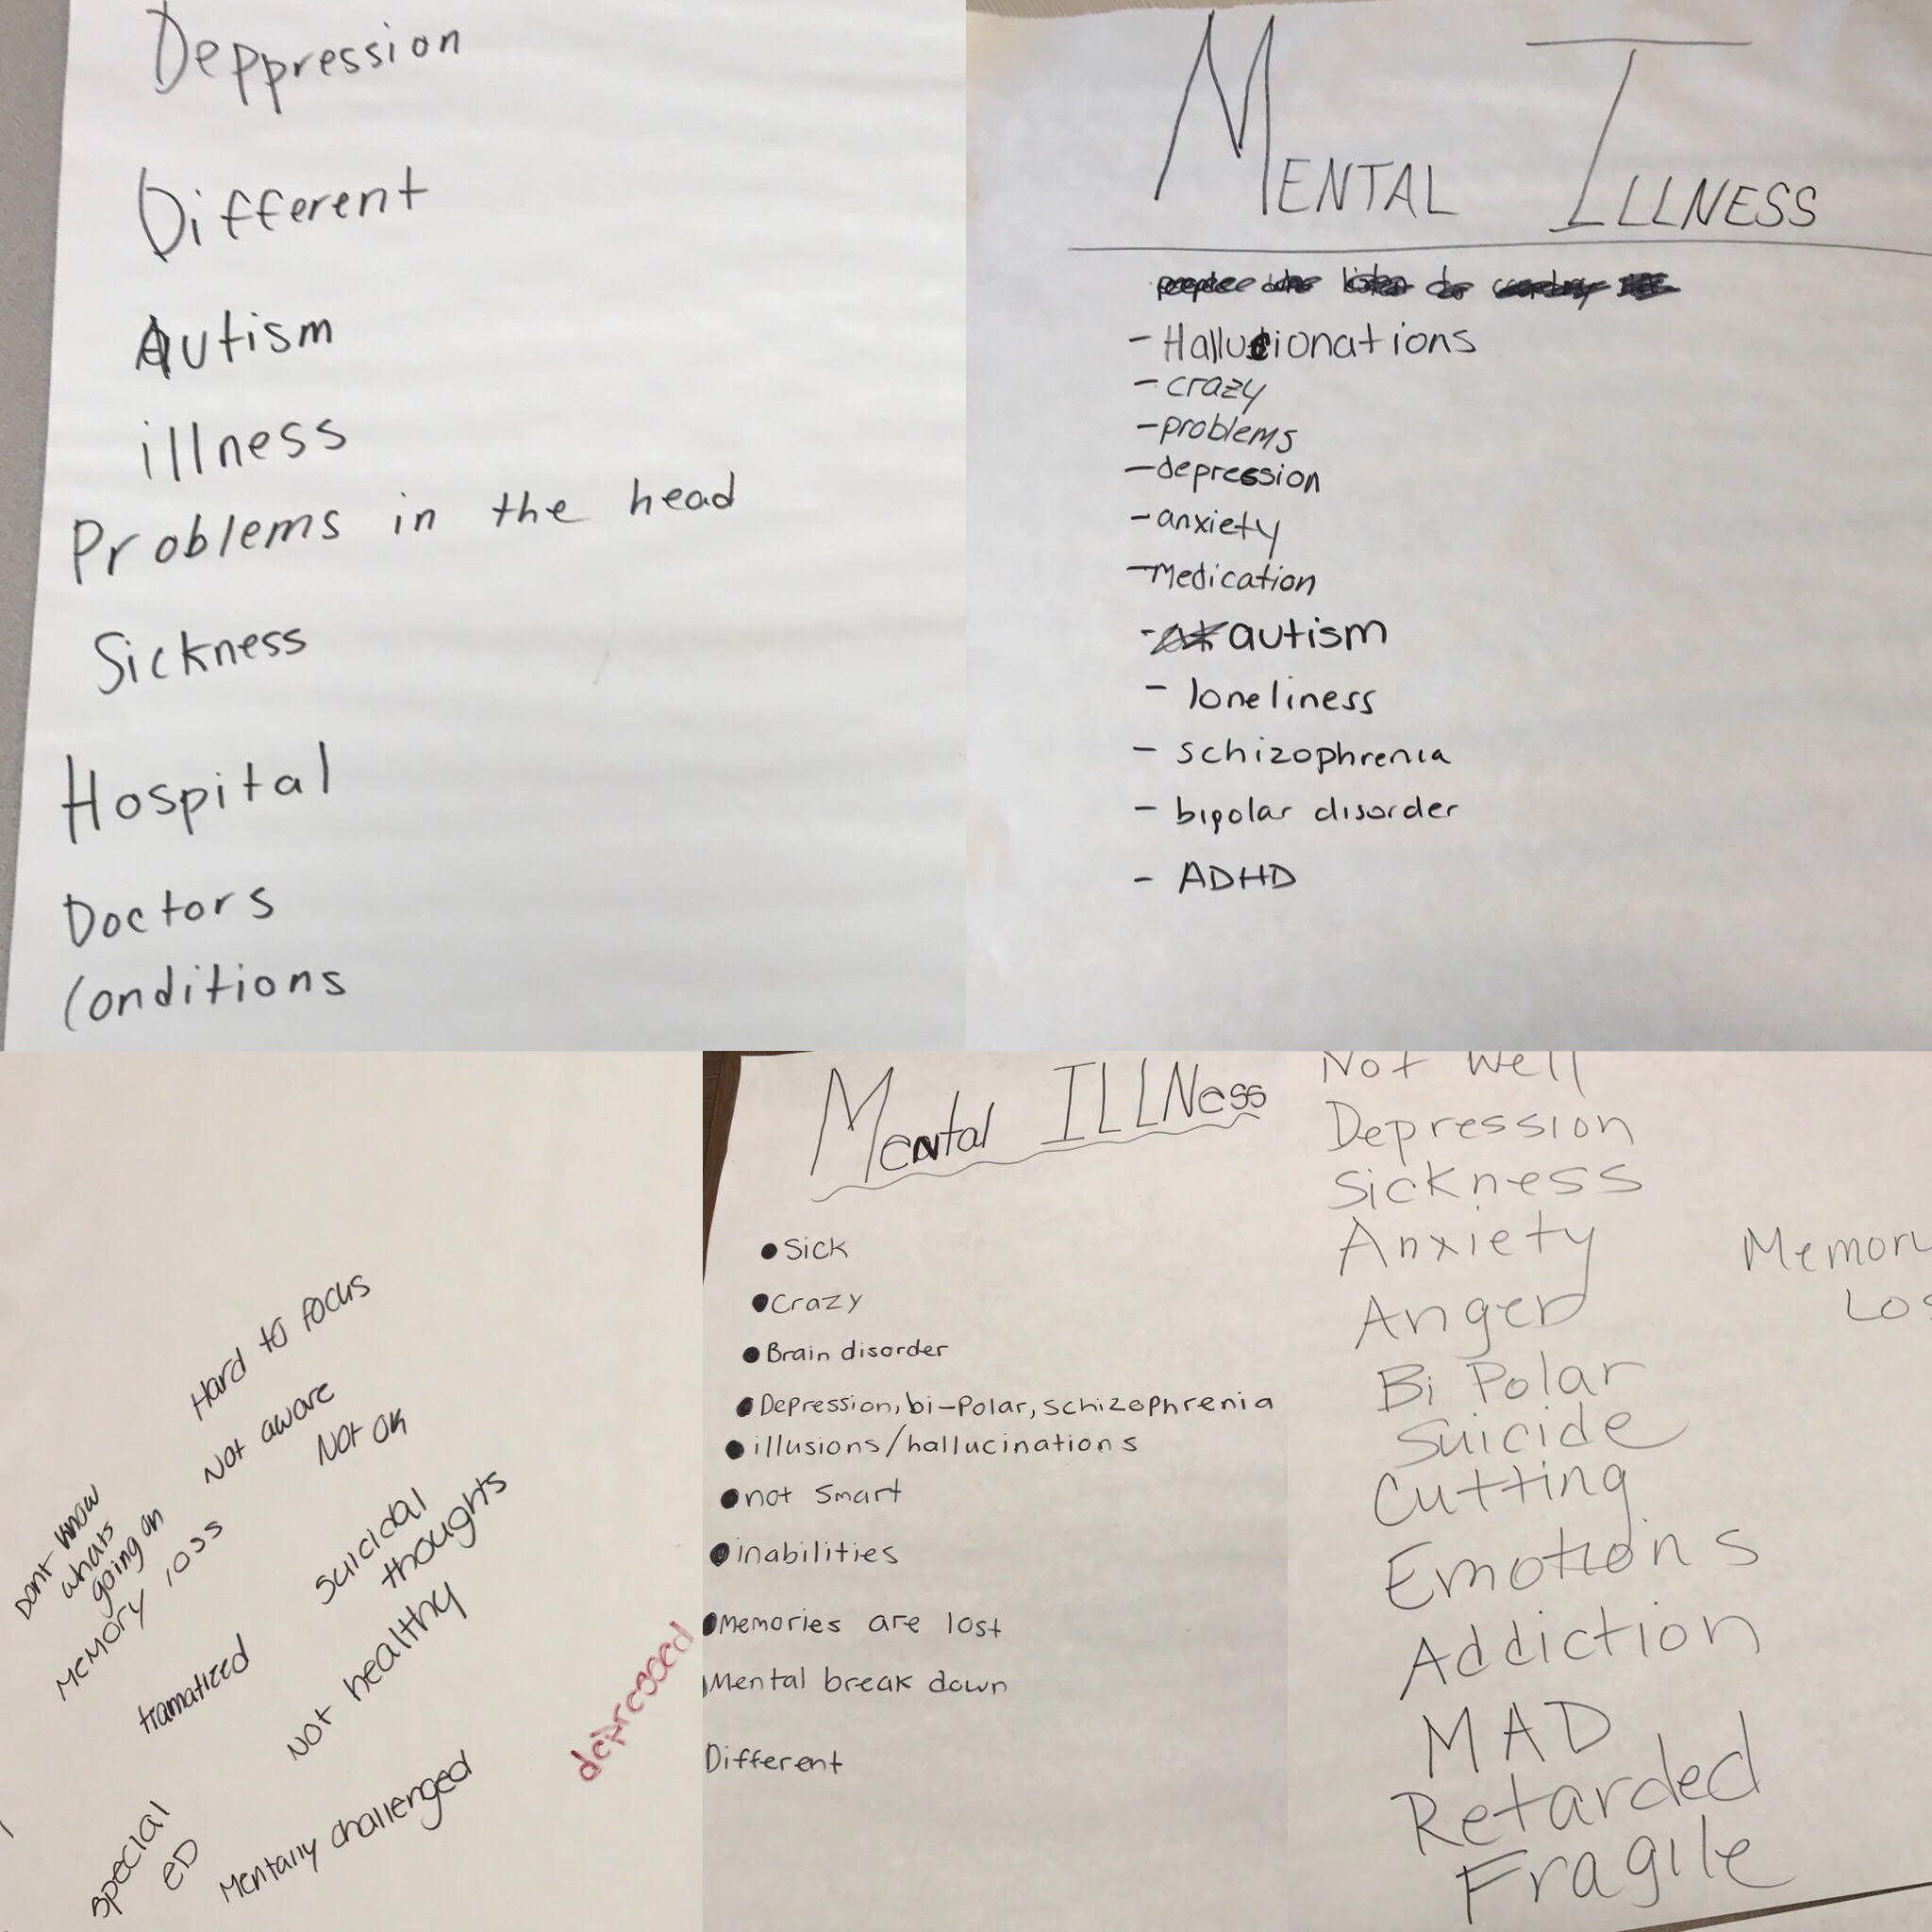 Deppression
Different
Autism
illness
Problems in the head
Sickness
Hospital
Doctors
Conditions
MENTAL ILLNESS
people who listen do
- Hallucionations
- crazy
- problems
- depression
- anxiety
- Medication
- autism
- loneliness
- schizophrenia
- bipolar disorder
- ADHD
Hard to focus
Not aware
Not ok
Dont know
whats
going on
Memory loss
suicidal
thoughts
tramatized
Not healthy
depressed
special
ED
Mentally challenged
Mental ILLNess
• Sick
• Crazy
• Brain disorder
• Depression, bi-Polar, schizophrenia
• illusions/hallucinations
• not smart
• inabilities
• Memories are lost
Mental break down
Different
Not Well
Depression
Sickness
Anxiety
Memory
Los
Anger
Bi Polar
Suicide
Cutting
Emotions
Addiction
MAD
Retarded
Fragile